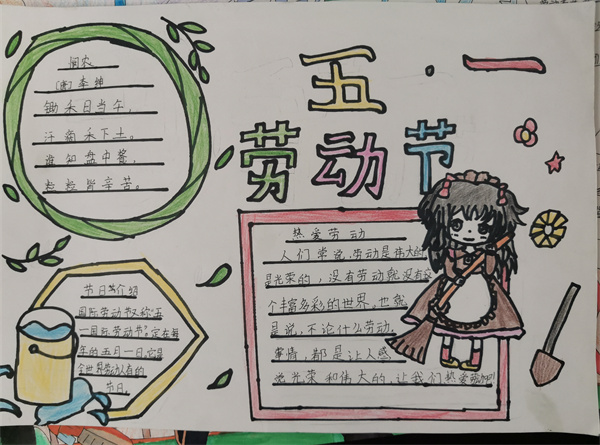 五·一
劳动节
悯农
(唐)李绅
锄禾日当午,
汗滴禾下土。
谁知盘中餐,
粒粒皆辛苦。
热爱劳动
人们常说,劳动是伟大的
是光荣的,没有劳动就没有这
个丰富多彩的世界。也就
是说,不论什么劳动,
事情,都是让人感
光荣和伟大的,让我们热爱劳动吧!
节日简介绍
国际劳动节又称"五
一国际劳动节",定在每
年的五月一日,它是
全世界劳动人有的
节日。